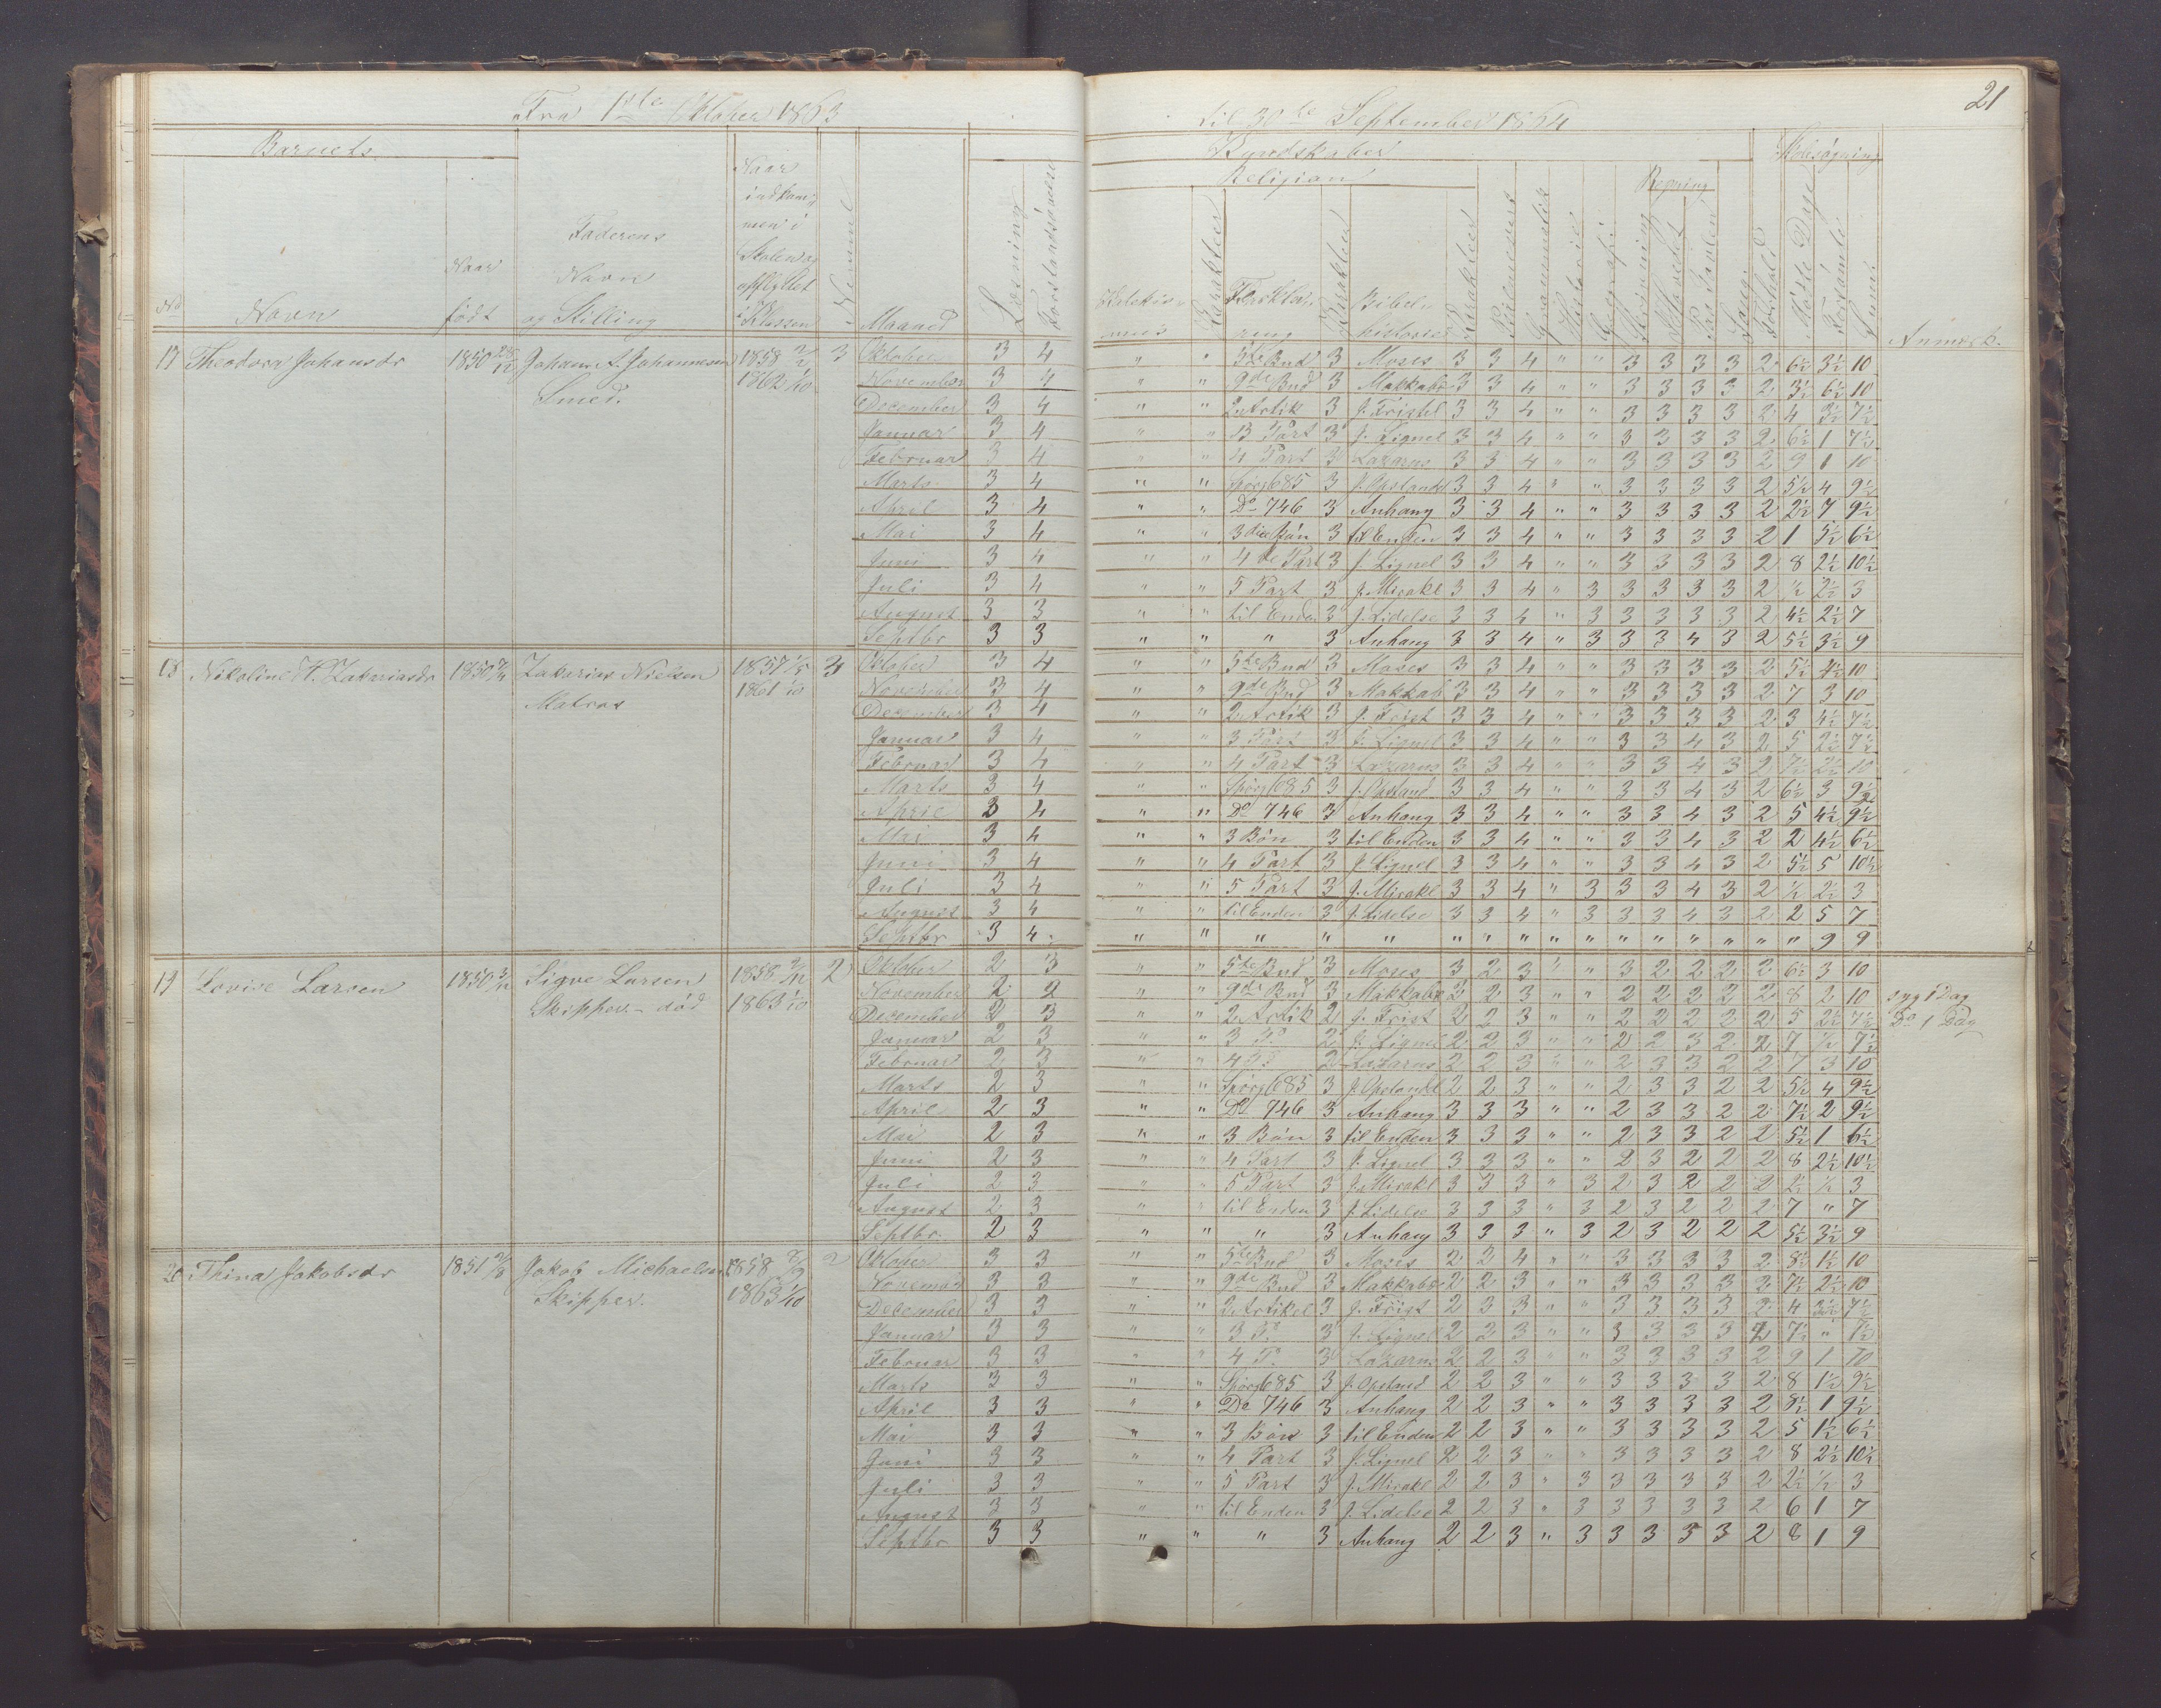 21
Fra 1ste Oktober 1863 til 30te September 1864
Barnets Kundskaber Skolesøgning
Religion Regning
No Navn Naar født Faderens Navn og Stilling Naar indkommen i Skolen og opflyttet i Klassen Maaned Læsning Forstandsøvelse
Karakter Forklaring Karakter Bibelhistorie Karakter Historie Geografi Skrivning Sang Forhold Mødte Dage Forsømte Sum Anmærk.
17 Theodora Johansdr 1850 Johan A. Johannesen Smed. 1858 1862 1/10 3
Oktober 3 4 " " 5te Bud 3 Moses 3 3 4 " " 3 3 3 3 2 6½ 3½ 10
November 3 4 " " 9de Bud 3 Makkabæ 3 3 4 " " 3 3 3 3 2 3½ 6½ 10
December 3 4 " " 2 Artik 3 J. Fristel 3 3 4 " " 3 3 3 3 2 4 3½ 7½
Januar 3 4 " " 3 Part 3 J. Lignel 3 3 4 " " 3 3 3 3 2 6½ 1 7½
Februar 3 4 " " 4 Part 3 Lazarus 3 3 4 " " 3 3 3 3 2 9 1 10
Marts 3 4 " " Spørg 685 3 J. Opstandel 3 3 4 " " 3 3 3 3 2 5½ 4 9½
April 3 4 " " Do 746 3 Anhang 3 3 4 " " 3 3 3 3 2 2½ 7 9½
Mai 3 4 " " 3die Bøn 3 til Enden 3 3 4 " " 3 3 3 3 2 1 5½ 6½
Juni 3 4 " " 4de Part 3 J. Lignel 3 3 4 " " 3 3 3 3 2 8 2½ 10½
Juli 3 4 " " 5 Part 3 J. Mirakl 3 3 4 " 3 3 3 3 3 2 ½ 2½ 3
August 3 3 " " til Enden 3 J. Lidelse 3 3 4 " 3 3 3 3 3 2 4½ 2½ 7
Septbr 3 3 " " " 3 Anhang 3 3 4 " 3 3 3 4 3 2 5½ 3½ 9
18 Nikoline H. Zakariasdr 1850 Zakarias Nielsen Matros 1857 1861 1/10 3
Oktober 3 4 " " 5te Bud 3 Moses 3 3 4 " " 3 3 3 3 2 5½ 4½ 10
November 3 4 " " 9de Bud 3 Makkab 3 3 4 " " 3 3 3 3 2 7 3 10
December 3 4 " " 2 Artik 3 J. Frist 3 3 4 " " 3 3 3 3 2 3 4½ 7½
Januar 3 4 " " 3 Part 3 J. Lignel 3 3 4 " " 3 3 4 3 2 5 2½ 7½
Februar 3 4 " " 4 Part 3 Lazarus 3 3 4 " " 3 3 4 3 2 7½ 2½ 10
Marts 3 4 " " Spørg 685 3 J. Opstand 3 3 4 " " 3 3 4 3 2 6½ 3 9½
April 3 4 " " Do 746 3 Anhang 3 3 4 " " 3 3 4 3 2 5 4½ 9½
Mai 3 4 " " 3 Bøn 3 til Enden 3 3 4 " " 3 3 4 3 2 2 4½ 6½
Juni 3 4 " " 4 Part 3 J. Lignel 3 3 4 " " 3 3 4 3 2 5½ 5 10½
Juli 3 4 " " 5 Part 3 J. Mirakl 3 3 4 " 3 3 3 4 3 2 ½ 2½ 3
August 3 4 " " til Enden 3 J. Lidelse 3 3 4 " 3 3 3 4 3 2 2 5 7
Septbr 3 4 " " " " " " " " " " " " " " " " 9 9
19 Lovise Larsen 1850 Sigve Larsen Skipper - død 1858 1863 1/10 2
Oktober 2 3 " " 5te Bud 3 Moses 3 2 3 " " 3 2 2 2 2 6½ 3 10
November 2 2 " " 9de Bud 3 Makkabæ 2 2 3 " " 2 2 2 2 2 8 2 10 syg 1 Dag
December 2 3 " " 2 Artik 2 J. Frist 2 2 3 " " 2 2 2 2 2 5 2½ 7½ Do 1 Dag
Januar 2 3 " " 3 P. 2 J. Lignel 2 2 3 " " 2 2 3 2 2 7 ½ 7½
Februar 2 3 " " 4 P. 2 Lazarus 2 2 3 " " 2 3 3 2 2 7 3 10
Marts 2 3 " " Spørg 685 3 J. Opstandel 2 2 3 " " 2 3 3 2 2 5½ 4 9½
April 2 3 " " Do 746 3 Anhang 3 3 3 " " 2 3 3 2 2 7½ 2 9½
Mai 2 3 " " 3 Bøn 3 til Enden 3 3 3 " " 2 3 3 2 2 5½ 1 6½
Juni 2 3 " " 4 Part 3 J. Lignel 3 3 3 " " 2 3 2 2 2 8 2½ 10½
Juli 2 3 " " 5 Part 3 J. Mirakl 3 3 3 " 3 2 3 2 2 2 2½ ½ 3
August 2 3 " " til Enden 3 J. Lidelse 3 3 3 " 3 2 3 2 2 2 7 " 7
Septbr. 2 3 " " " 3 Anhang 3 3 3 " 3 2 3 2 2 2 5½ 3½ 9
20 Thina Jakobsdr 1851 Jakob Michaelsen Skipper. 1858 1863 1/10 2
Oktober 3 3 " " 5te Bud 3 Moses 2 2 4 " " 3 3 3 3 2 8½ 1½ 10
November 3 3 " " 9de Bud 3 Makkabæ 2 2 3 " " 3 3 3 3 2 7½ 2½ 10
December 3 3 " " 2 Artikel 3 J. Frist 2 3 3 " " 3 3 3 3 2 4 3½ 7½
Januar 3 3 " " 3 P. 3 J. Lignel 2 2 3 " " 3 3 3 3 2 7½ " 7½
Februar 3 3 " " 4 P. 3 Lazarus 2 2 3 " " 3 3 3 3 2 9 1 10
Marts 3 3 " " Spørg 685 3 J. Opstand 2 2 3 " " 3 3 3 3 2 8 1½ 9½
April 3 3 " " Do 746 3 Anhang 2 2 3 " " 3 3 3 3 2 8½ 1 9½
Mai 3 3 " " 3 Bøn 3 til Enden 2 2 3 " " 3 3 3 3 2 5 1½ 6½
Juni 3 3 " " 4 Part 3 J. Lignel 2 2 3 " " 3 3 3 3 2 8 2½ 10½
Juli 3 3 " " 5 Part 3 J. Mirakl 2 2 3 " 3 3 3 3 3 2 2½ ½ 3
August 3 3 " " til Enden 3 J. Lidelse 2 2 3 " 3 3 3 3 3 2 6 1 7
Septbr 3 3 " " " 3 Anhang 2 2 3 " 3 3 3 3 3 2 8 1 9